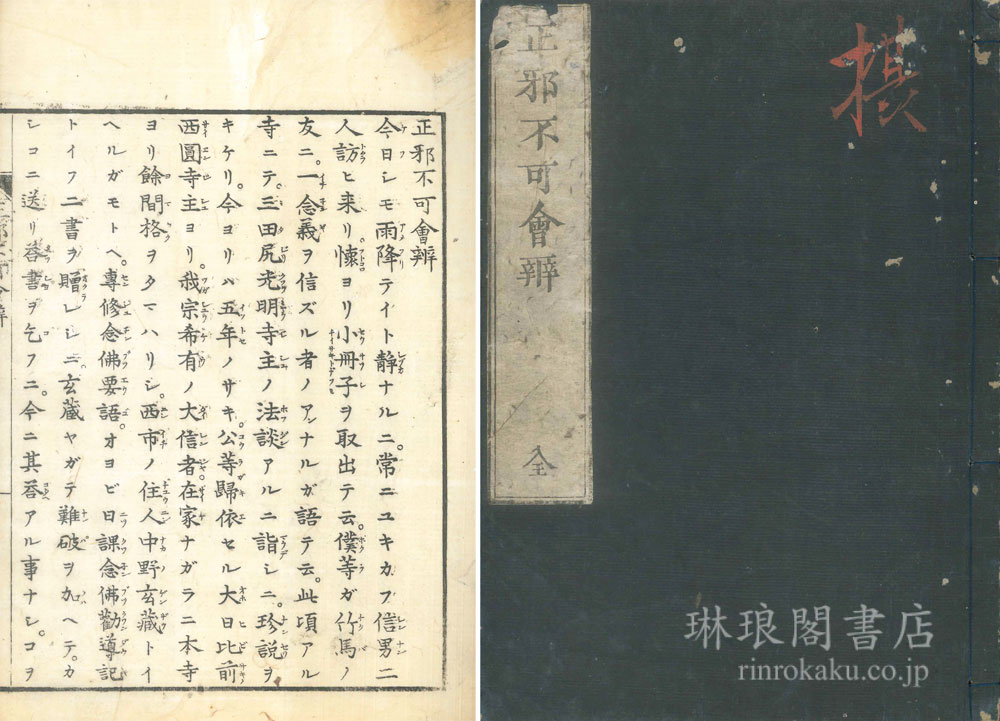 正邪不可會辨
今日シモ雨降テイト靜ナルニ。常ニユキカフ信男二
人訪ヒ来リ懐ヨリ小冊子ヲ取出テ云。僕等ガ竹馬ノ
友ニ。一念義ヲ信ズル者ノアンナルガ語テ云。此頃アル
寺ニテ三田尻光明寺主ノ法談アルニ詣シニ。珍説ヲ
キケリ。今ヨリハ五年ノサキ。公等歸依セル大日比前
西圓寺主ヨリ。我宗希有ノ大信者。在家ナガラニ本寺
ヨリ餘間格ヲタマハリシ。西市ノ住人中野玄藏トイ
ヘルガモトヘ。專修念佛要語。オヨビ日課念佛勸導記
トイフ二書ヲ贈レシニ。玄藏ヤガテ難破ヲ加ヘテ。カ
シコニ送リ荅書ヲ乞フニ。今ニ其荅アル事ナシ。コヲ
正邪不可會辨 全
琳琅閣書店
rinrokaku.co.jp